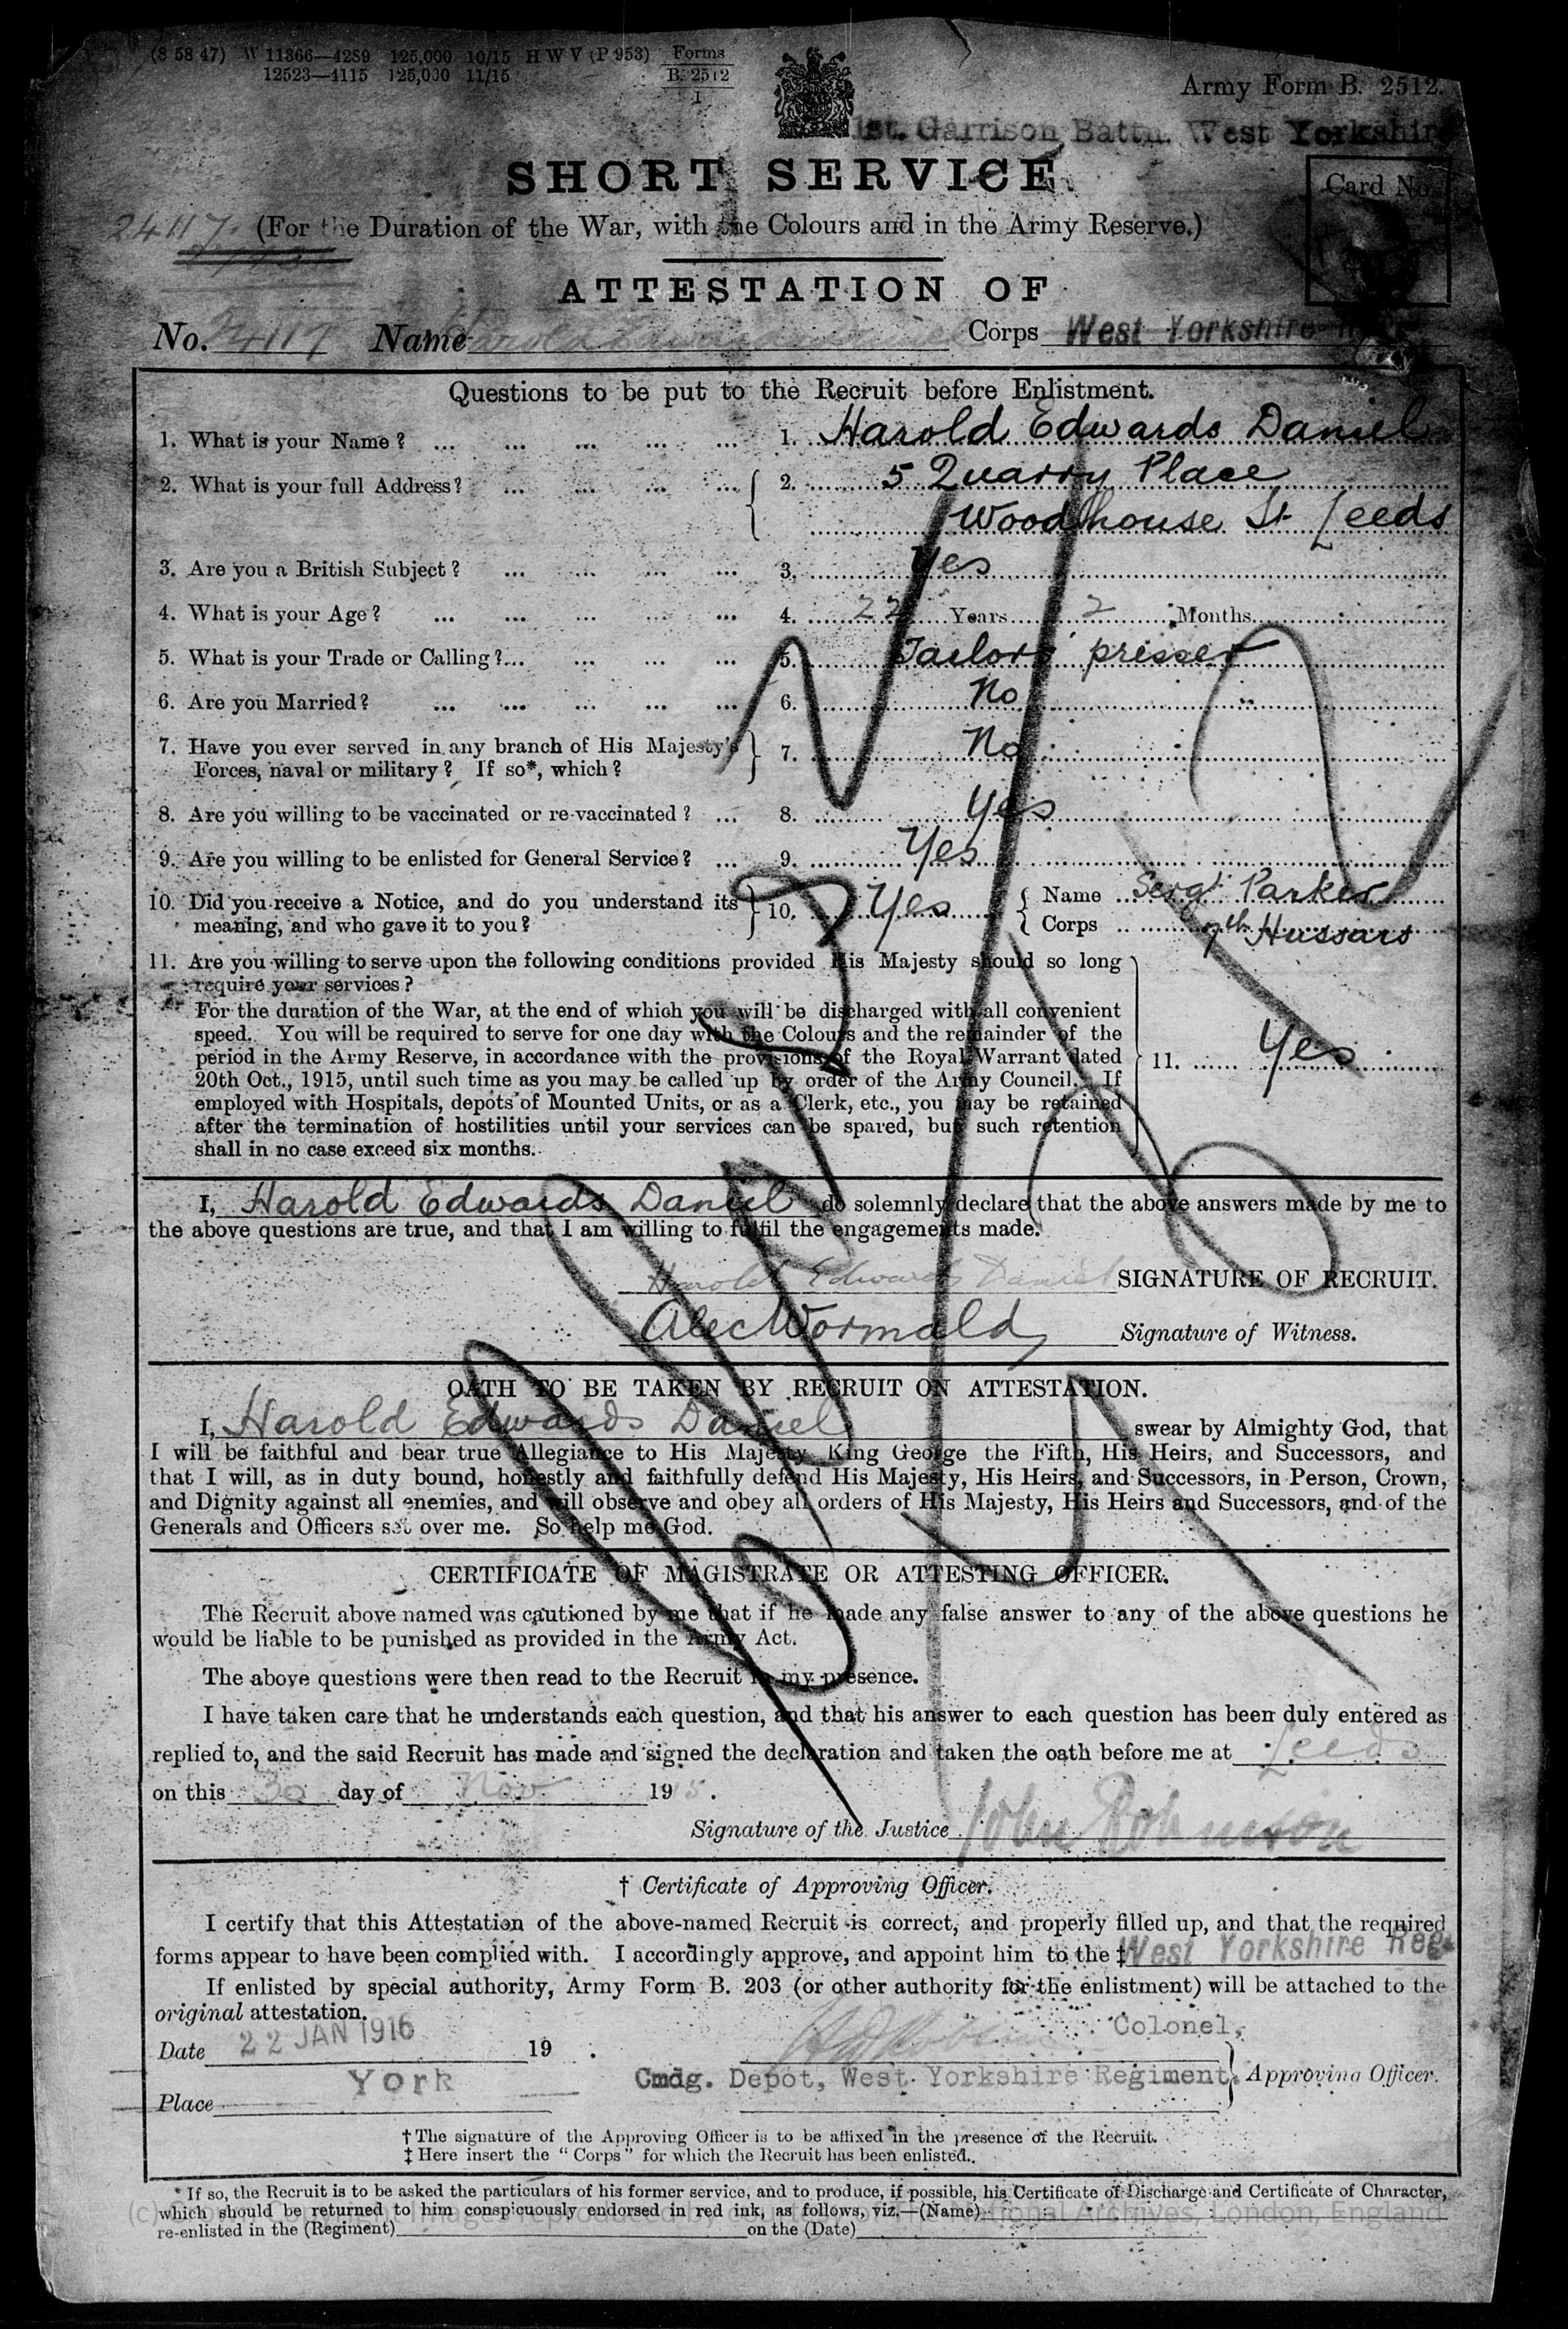 (8 58 47) W 11366—4289 125,000 10/15 H W V (P 953) Forms
12523—4115 125,000 11/15 B. 2512
1
Army Form B. 2512.
1st. Garrison Battn. West Yorkshire
SHORT SERVICE.
Card No.
24117 (For the Duration of the War, with the Colours and in the Army Reserve.)
ATTESTATION OF
No. 24117 Name Harold Edwards Daniel Corps West Yorkshire
Questions to be put to the Recruit before Enlistment.
1. What is your Name? ... 1. Harold Edwards Daniel
2. What is your full Address? ... 2. 5 Quarry Place
Woodhouse St Leeds
3. Are you a British Subject? ... 3. Yes
4. What is your Age? ... 4. 22 Years 2 Months
5. What is your Trade or Calling?... 5. Tailors' presser
6. Are you Married? ... 6. No
7. Have you ever served in any branch of His Majesty's 7. No
Forces, naval or military? If so*, which?
8. Are you willing to be vaccinated or re-vaccinated? ... 8. Yes
9. Are you willing to be enlisted for General Service? ... 9. Yes
10. Did you receive a Notice, and do you understand its 10. Yes Name Sergt Parker
meaning, and who gave it to you? Corps 7th Hussars
11. Are you willing to serve upon the following conditions provided His Majesty should so long
require your services?
For the duration of the War, at the end of which you will be discharged with all convenient
speed. You will be required to serve for one day with the Colours and the remainder of the
period in the Army Reserve, in accordance with the provisions of the Royal Warrant dated 11. Yes
20th Oct., 1915, until such time as you may be called up by order of the Army Council. If
employed with Hospitals, depots of Mounted Units, or as a Clerk, etc., you may be retained
after the termination of hostilities until your services can be spared, but such retention
shall in no case exceed six months.
I, Harold Edwards Daniel do solemnly declare that the above answers made by me to
the above questions are true, and that I am willing to fulfil the engagements made.
Harold Edwards Daniel SIGNATURE OF RECRUIT.
Alec Wormald Signature of Witness.
OATH TO BE TAKEN BY RECRUIT ON ATTESTATION.
I, Harold Edwards Daniel swear by Almighty God, that
I will be faithful and bear true Allegiance to His Majesty King George the Fifth, His Heirs, and Successors, and
that I will, as in duty bound, honestly and faithfully defend His Majesty, His Heirs, and Successors, in Person, Crown,
and Dignity against all enemies, and will observe and obey all orders of His Majesty, His Heirs and Successors, and of the
Generals and Officers set over me. So help me God.
CERTIFICATE OF MAGISTRATE OR ATTESTING OFFICER.
The Recruit above named was cautioned by me that if he made any false answer to any of the above questions he
would be liable to be punished as provided in the Army Act.
The above questions were then read to the Recruit in my presence.
I have taken care that he understands each question, and that his answer to each question has been duly entered as
replied to, and the said Recruit has made and signed the declaration and taken the oath before me at Leeds
on this 30 day of Nov 1915.
Signature of the Justice John Robinson
† Certificate of Approving Officer.
I certify that this Attestation of the above-named Recruit is correct, and properly filled up, and that the required
forms appear to have been complied with. I accordingly approve, and appoint him to the ‡ West Yorkshire Reg
If enlisted by special authority, Army Form B. 203 (or other authority for the enlistment) will be attached to the
original attestation.
Date 22 JAN 1916 19 . Colonel,
Cmdg. Depot, West Yorkshire Regiment. Approving Officer.
Place York
† The signature of the Approving Officer is to be affixed in the presence of the Recruit.
‡ Here insert the "Corps" for which the Recruit has been enlisted.
* If so, the Recruit is to be asked the particulars of his former service, and to produce, if possible, his Certificate of Discharge and Certificate of Character,
which should be returned to him conspicuously endorsed in red ink, as follows, viz.—(Name)
re-enlisted in the (Regiment) on the (Date)
National Archives, London, England